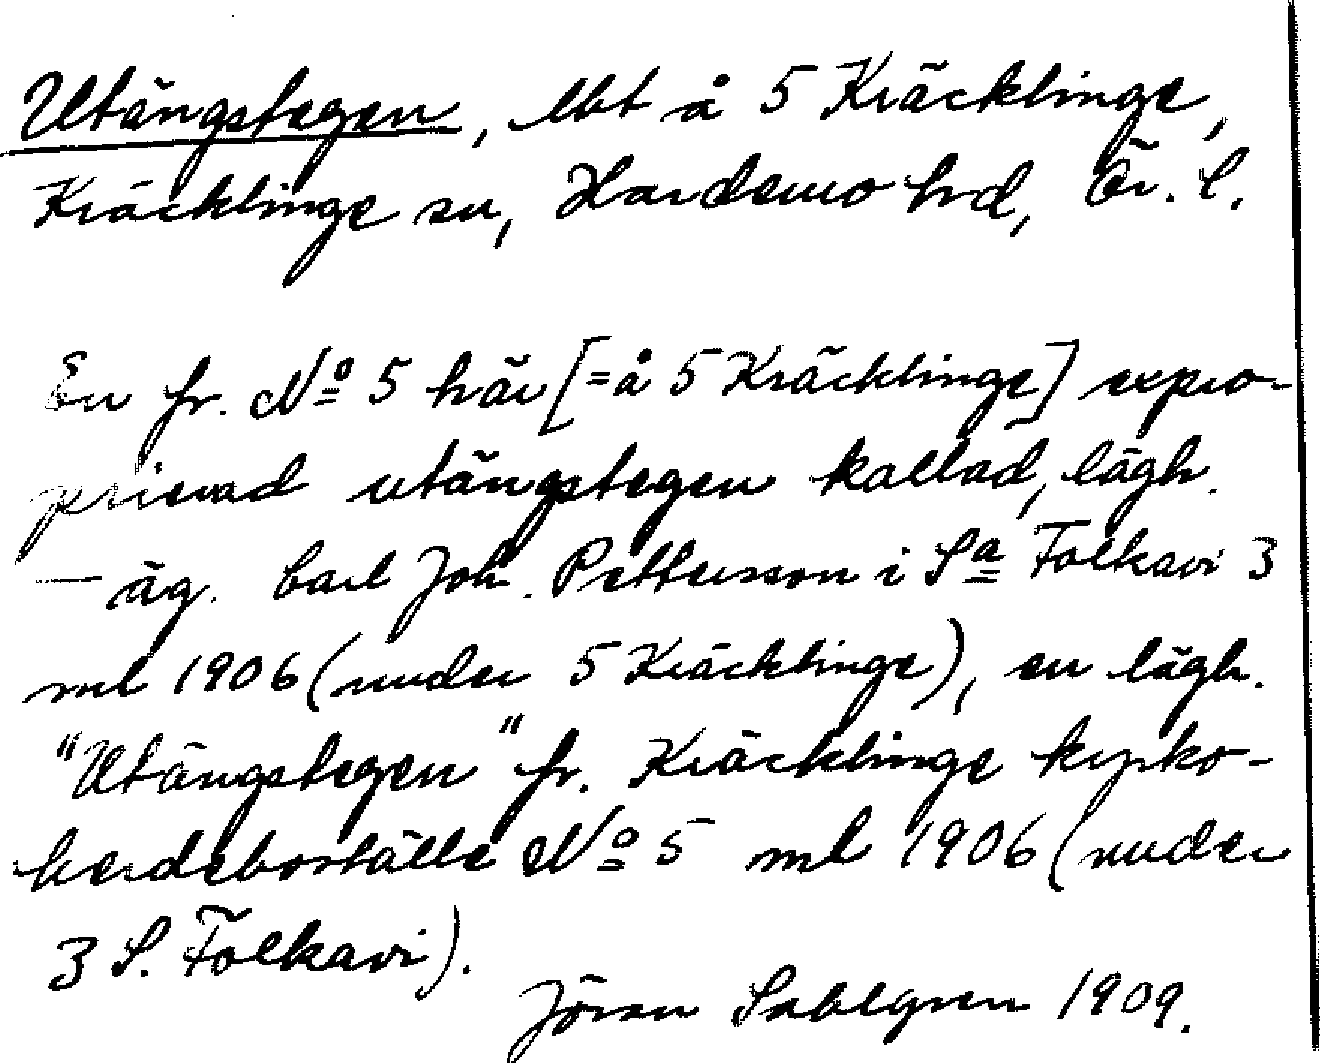 Utängstegen, lbt å 5 Kräcklinge,
Kräcklinge sn, Hardemo hrd, Ör. l.
En fr. No 5 här [= å 5 Kräcklinge] expro-
prierad utängstegen kallad, lägh.
— äg. Carl Joh. Pettersson i Sa Folkavi 3
ml 1906 (under 5 Kräcklinge), en lägh.
"Utängstegen" fr. Kräcklinge kyrko-
herdeboställe No 5 ml 1906 (under
3 S. Folkavi).
Jöran Sahlgren 1909.